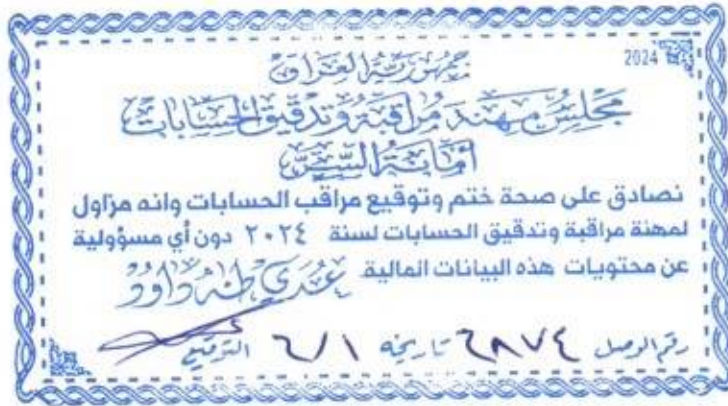 2024
جمهورية العراق
مجلس مهنة مراقبة وتدقيق الحسابات
أمانة السر
نصادق على صحة ختم وتوقيع مراقب الحسابات وانه مزاول
لمهنة مراقبة وتدقيق الحسابات لسنة ٢٠٢٤ دون أي مسؤولية
عن محتويات هذه البيانات المالية عدي طه داود
رقم الوصل ٦٨٧٤ تاريخه ٦/١ التوقيع